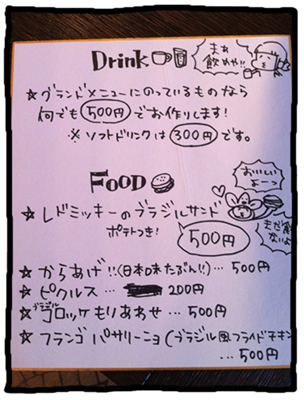 Drink
まぁ
飲めや!!
☆ グランドメニューにのっているものなら
何でも 500円 でお作りします!
※ ソフトドリンクは 300円 です。
FOOD
おいしい
よーっ
☆ レドミッキーのブラジルサンド
ポテトつき!
500円
まだ食
ないよ
☆ からあげ!!(日本味たぶん!!)… 500円
☆ ピクルス … 200円
☆ ブラジル コロッケもりあわせ … 500円
☆ フランゴ パサリーニョ (ブラジル風フライドチキン
… 500円